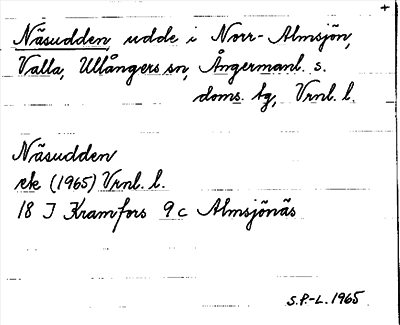 +
Näsudden, udde i Norr-Almsjön,
Valla, Ullångers sn, Ångermanl. s.
doms. tg, Vrnl. l.
Näsudden
ek (1965) Vrnl. l.
18 J Kramfors 9 c Almsjönäs
S.P-L. 1965